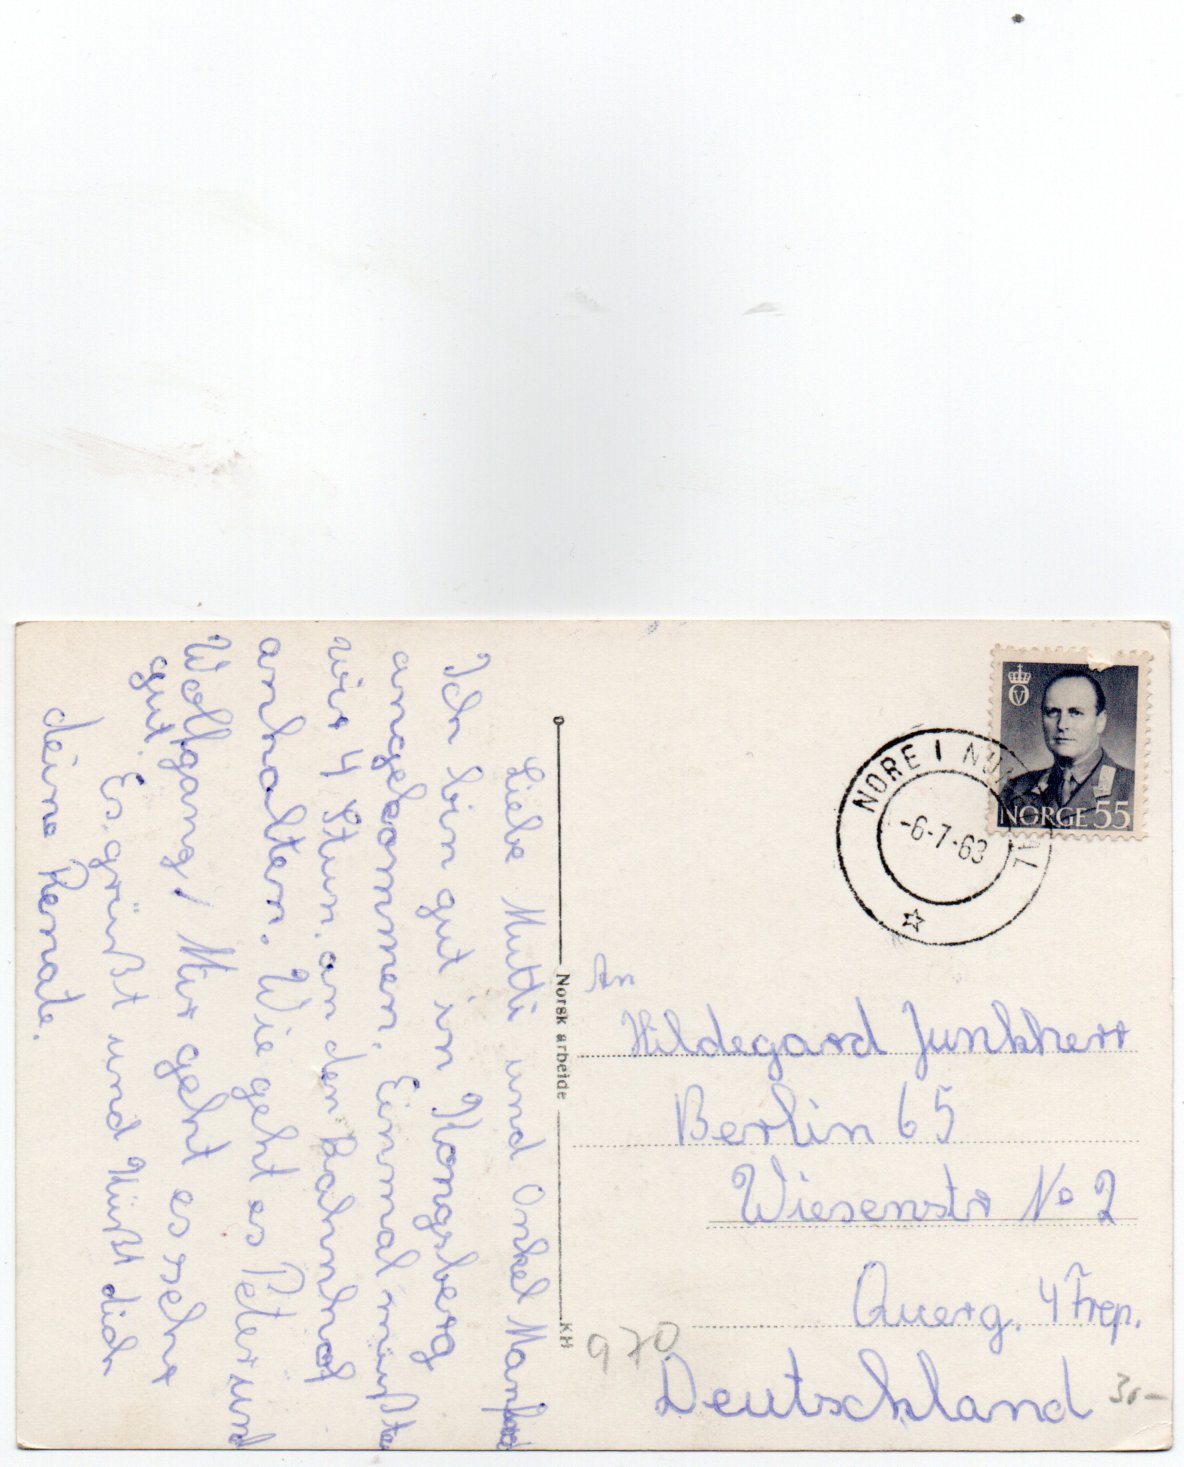 Liebe Mutti und Onkel Manfred
Ich bin gut in Kongsberg
angekommen. Einmal mußten
wir 4 Stun. an den Bahnhof
anhalten. Wie geht es Peter und
Wolfgang / Mir geht es sehr
gut. Es grüßt und küßt dich
deine Renate.
Norsk arbeide
KH
NORE I
-6-7-63
NORGE 55
An
Hildegard Junkherr
Berlin 65
Wiesenstr No 2
Querg. 4 Trep.
Deutschland
970
30-